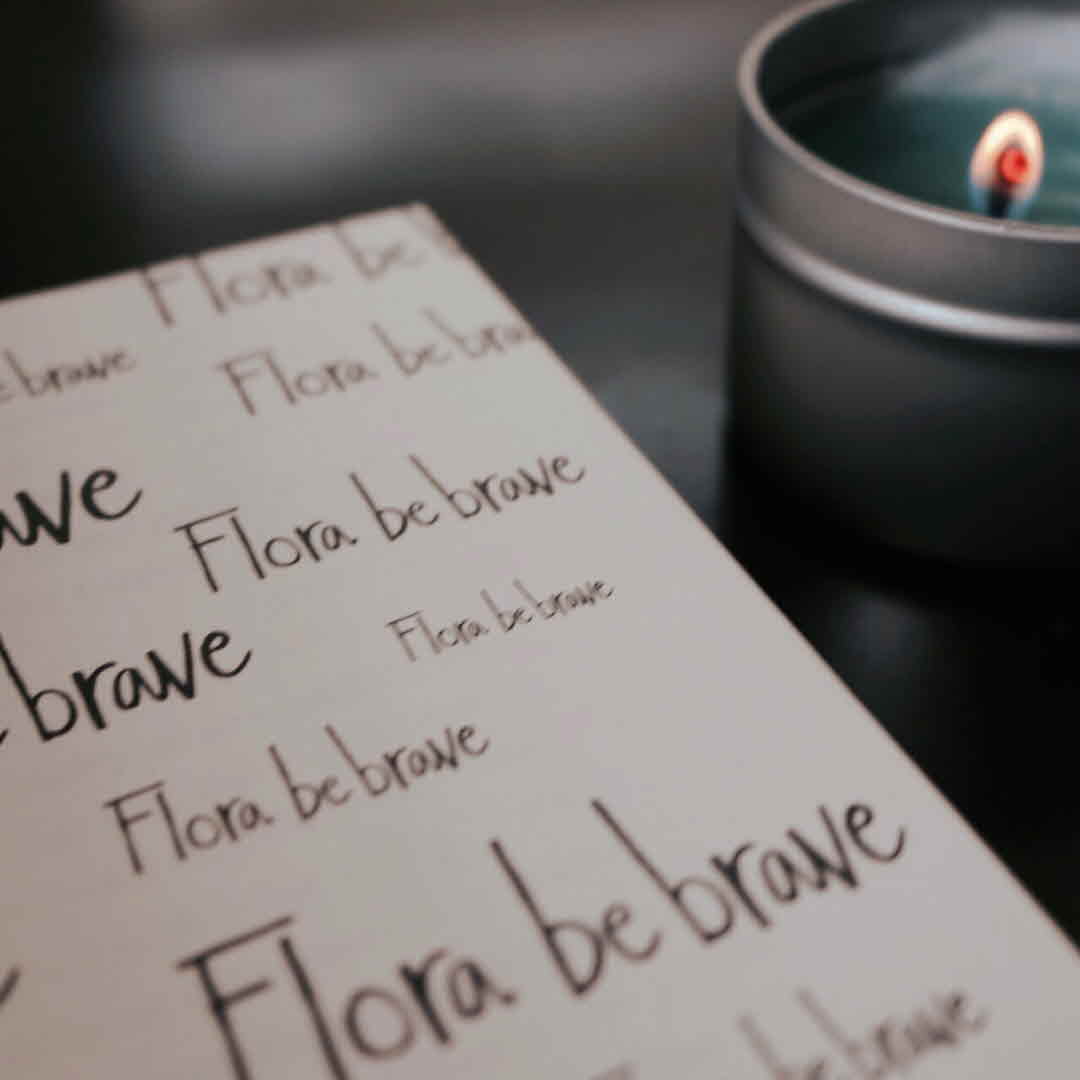 Flora be
be brave
Flora be brav
ave
Flora be brave
Flora be brave
brave
Flora be brave
Flora be brave
be brave